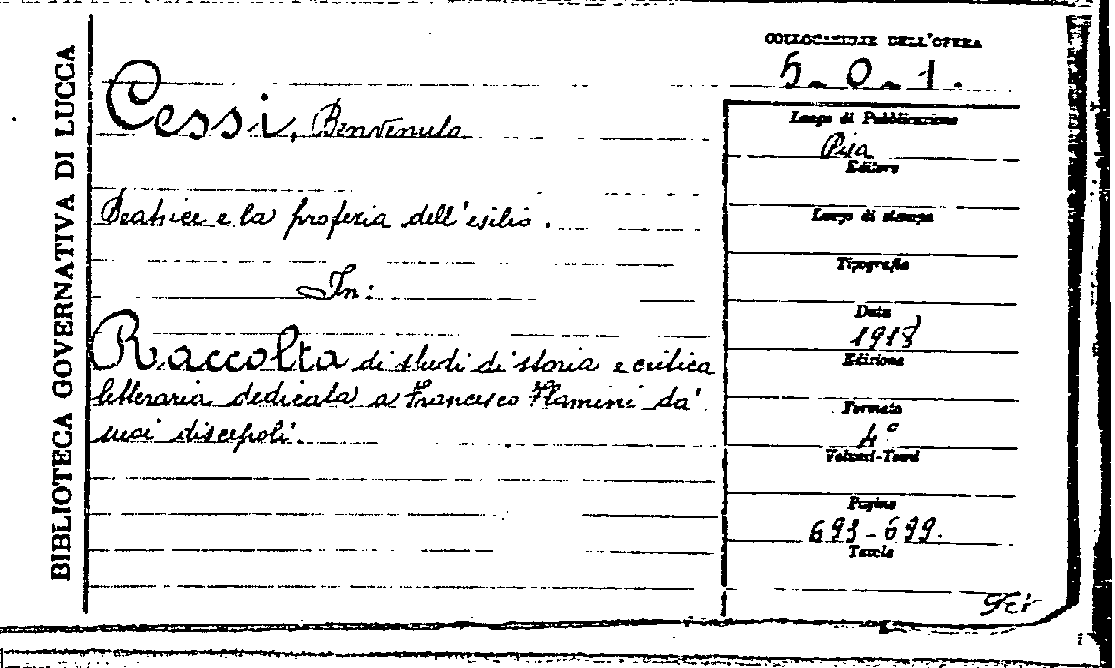 BIBLIOTECA GOVERNATIVA DI LUCCA
COLLOCAZIONE DELL'OPERA
5.0.1.
Cessi, Benvenuto
Beatrice e la profezia dell'esilio.
In:
Raccolta di studi di storia e critica
letteraria dedicata a Francesco Flamini da'
suoi discepoli.
Luogo di Pubblicazione
Pisa
Editore
Luogo di stampa
Tipografia
Data
1918
Edizione
Formato
4°
Volumi-Tomi
Pagine
693-699.
Tavole